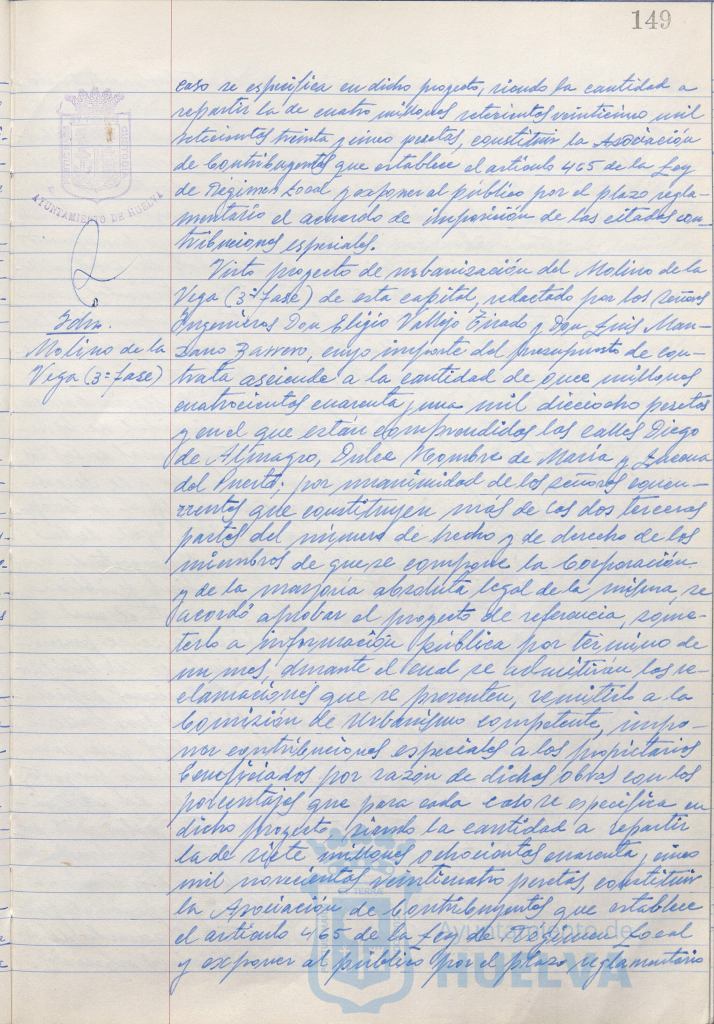 149
caso se especifica en dicho proyecto, siendo la cantidad a
repartir la de cuatro millones setecientos veinticinco mil
setecientos treinta y cinco pesetas, constituir la Asociación
de Contribuyentes que establece el artículo 465 de la Ley
de Régimen Local y exponer al público por el plazo regla-
mentario el acuerdo de imposición de las citadas con-
tribuciones especiales.
AYUNTAMIENTO DE HUELVA
Idm.
Molino de la
Vega (3ª fase)
Visto proyecto de urbanización del Molino de la
Vega (3ª fase) de esta capital, redactado por los Señores
Ingenieros Don Eligio Vallejo Tirado y Don Luis Man-
zano Barrero, cuyo importe del presupuesto de con-
trata asciende a la cantidad de once millones
cuatrocientos cuarenta y una mil dieciocho pesetas
y en el que están comprendidas las calles Diego
de Almagro, Dulce Nombre de María y Lucena
del Puerto; por unanimidad de los señores concu-
rrentes que constituyen más de las dos terceras
partes del número de hecho y de derecho de los
miembros de que se compone la Corporación
y de la mayoría absoluta legal de la misma, se
acordó aprobar el proyecto de referencia, some-
terlo a información pública por término de
un mes, durante el cual se admitirán las re-
clamaciones que se presenten, remitirlo a la
Comisión de Urbanismo competente, impo-
ner contribuciones especiales a los propietarios
beneficiados por razón de dichas obras con los
porcentajes que para cada caso se especifica en
dicho proyecto, siendo la cantidad a repartir
la de siete millones ochocientas cuarenta y cinco
mil novecientas veinticuatro pesetas, constituir
la Asociación de Contribuyentes que establece
el artículo 465 de la Ley de Régimen Local
y exponer al público por el plazo reglamentario
Ayuntamiento de
HUELVA